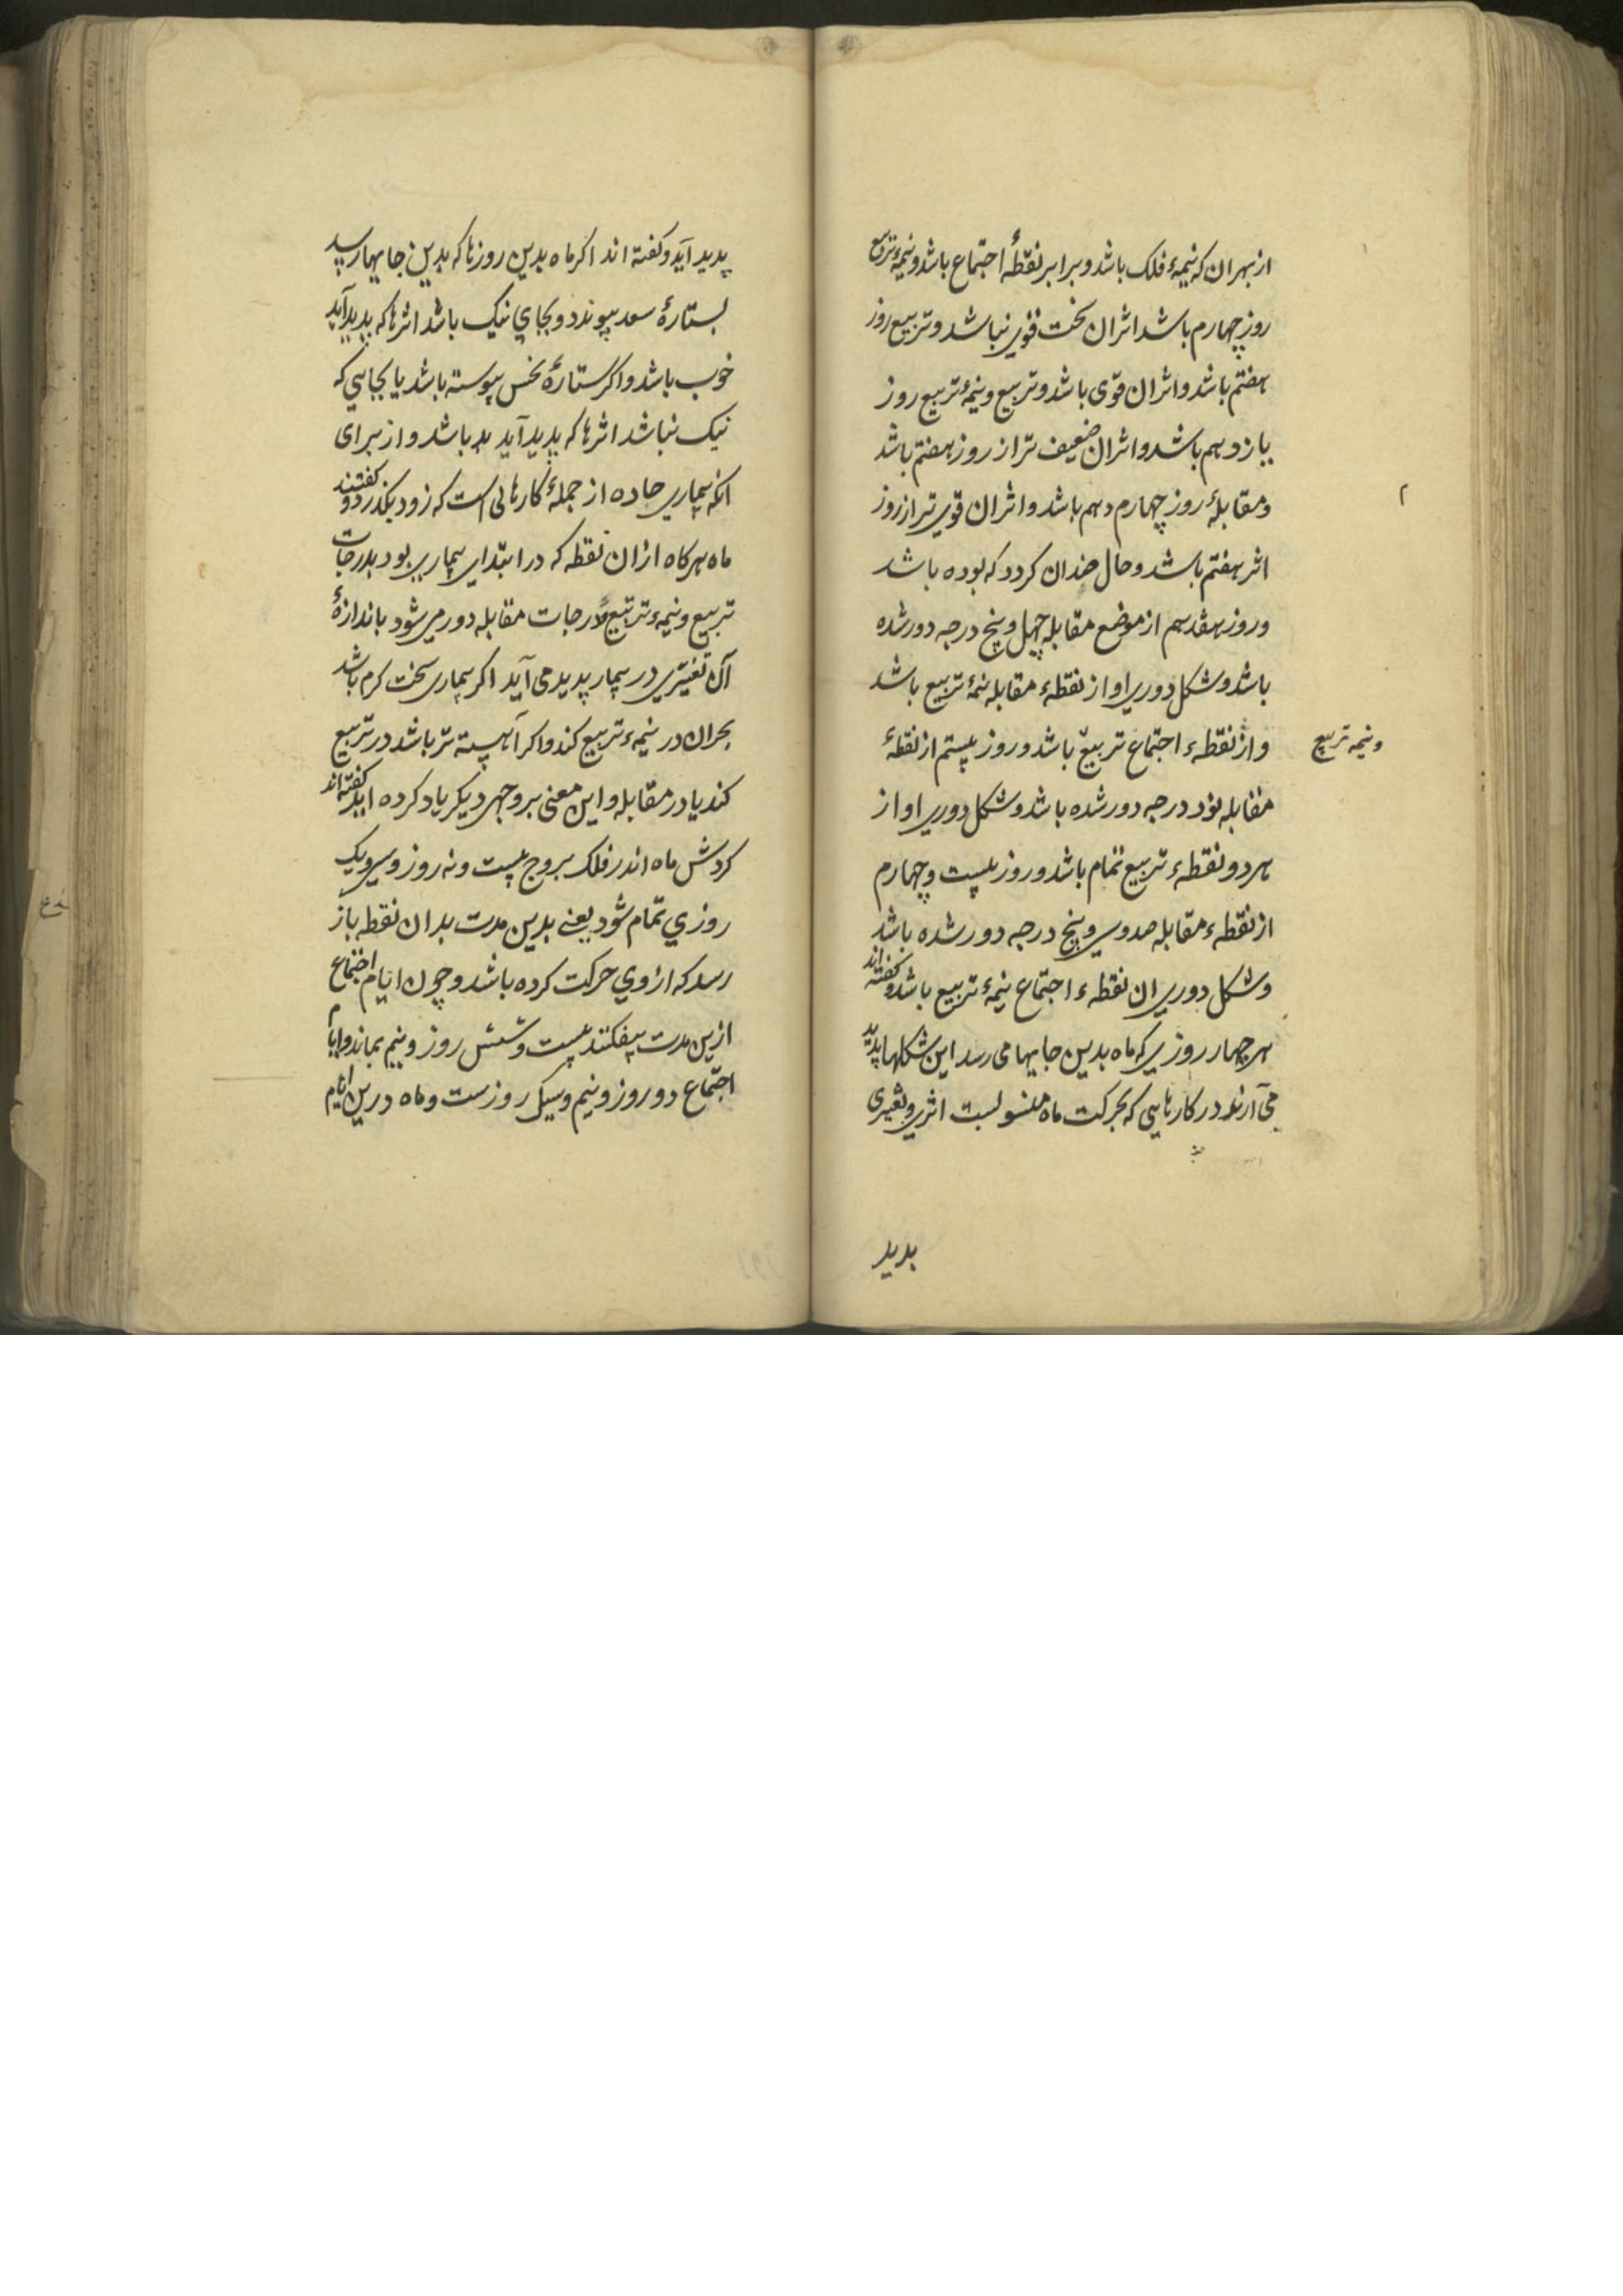 از بهر ان که نیمهٔ فلک باشد و برابر نقطهٔ اجتماع باشد و نیمهٔ تربیع
روز چهارم باشد اثر ان سخت قوی نباشد و تربیع روز
هفتم باشد و اثر ان قوی باشد و تربیع و نیمهٔ تربیع روز
یازدهم باشد و اثر ان ضعیف تر از روز هفتم باشد
و مقابلهٔ روز چهاردهم باشد و اثر ان قوی تر از روز
اثر هفتم باشد و حال چندان کردد که بوده باشد
و روز هفدهم از موضع مقابله چهل و پنج درجه دور شده
باشد و شکل دوری او از نقطهٔ مقابله نیمهٔ تربیع باشد
و از نقطهٔ اجتماع تربیع باشد و روز بیستم از نقطهٔ
و نیمه تربیع
مقابله نود درجه دور شده باشد و شکل دوری او از
هر دو نقطهٔ تربیع تمام باشد و روز بیست و چهارم
از نقطهٔ مقابله صد و سی و پنج درجه دور شده باشد
و شکل دوری ان نقطهٔ اجتماع نیمهٔ تربیع باشد و کفته اند
هر چهار روزی که ماه بدین جایها می رسد این شکلها پدید
می آرند در کارهایی که بحرکت ماه منسوبست اثری و تغیری
بدید
پدید آید و کفته اند اکر ماه بدین روزها که بدین جایها رسد
بستارهٔ سعد پیوندد و بجای نیک باشد اثرها که پدید آید
خوب باشد و اکر ستارهٔ نحس پیوسته باشد یا بجایی که
نیک نباشد اثرها که پدید آید بد باشد و از برای
انکه بیماری حاده از جملهٔ کارهائی است که زود بکذرد و کفتند
ماه هرکاه ازان نقطه که در ابتدای بیماری بود بدرجات
تربیع و نیمهٔ تربیع و درجات مقابله دور می شود باندازهٔ
آن تغییری در بیمار پدید می آید اکر بیماری سخت کرم باشد
بحران در نیمهٔ تربیع کند و اکر آهسته تر باشد در تربیع
کند یا در مقابله و این معنی بر وجهی دیکر یاد کرده اند کفته اند
کردش ماه اندر فلک بروج بیست و نه روز و سی و یک
روزی تمام شود یعنی بدین مدت بدان نقطه باز
رسد که ازوی حرکت کرده باشد و چون ایام اجتماع
ازین مدت بیفکنند بیست و شش روز و نیم بماند و ایام
اجتماع دو روز و نیم و سیک روزست و ماه درین ایام